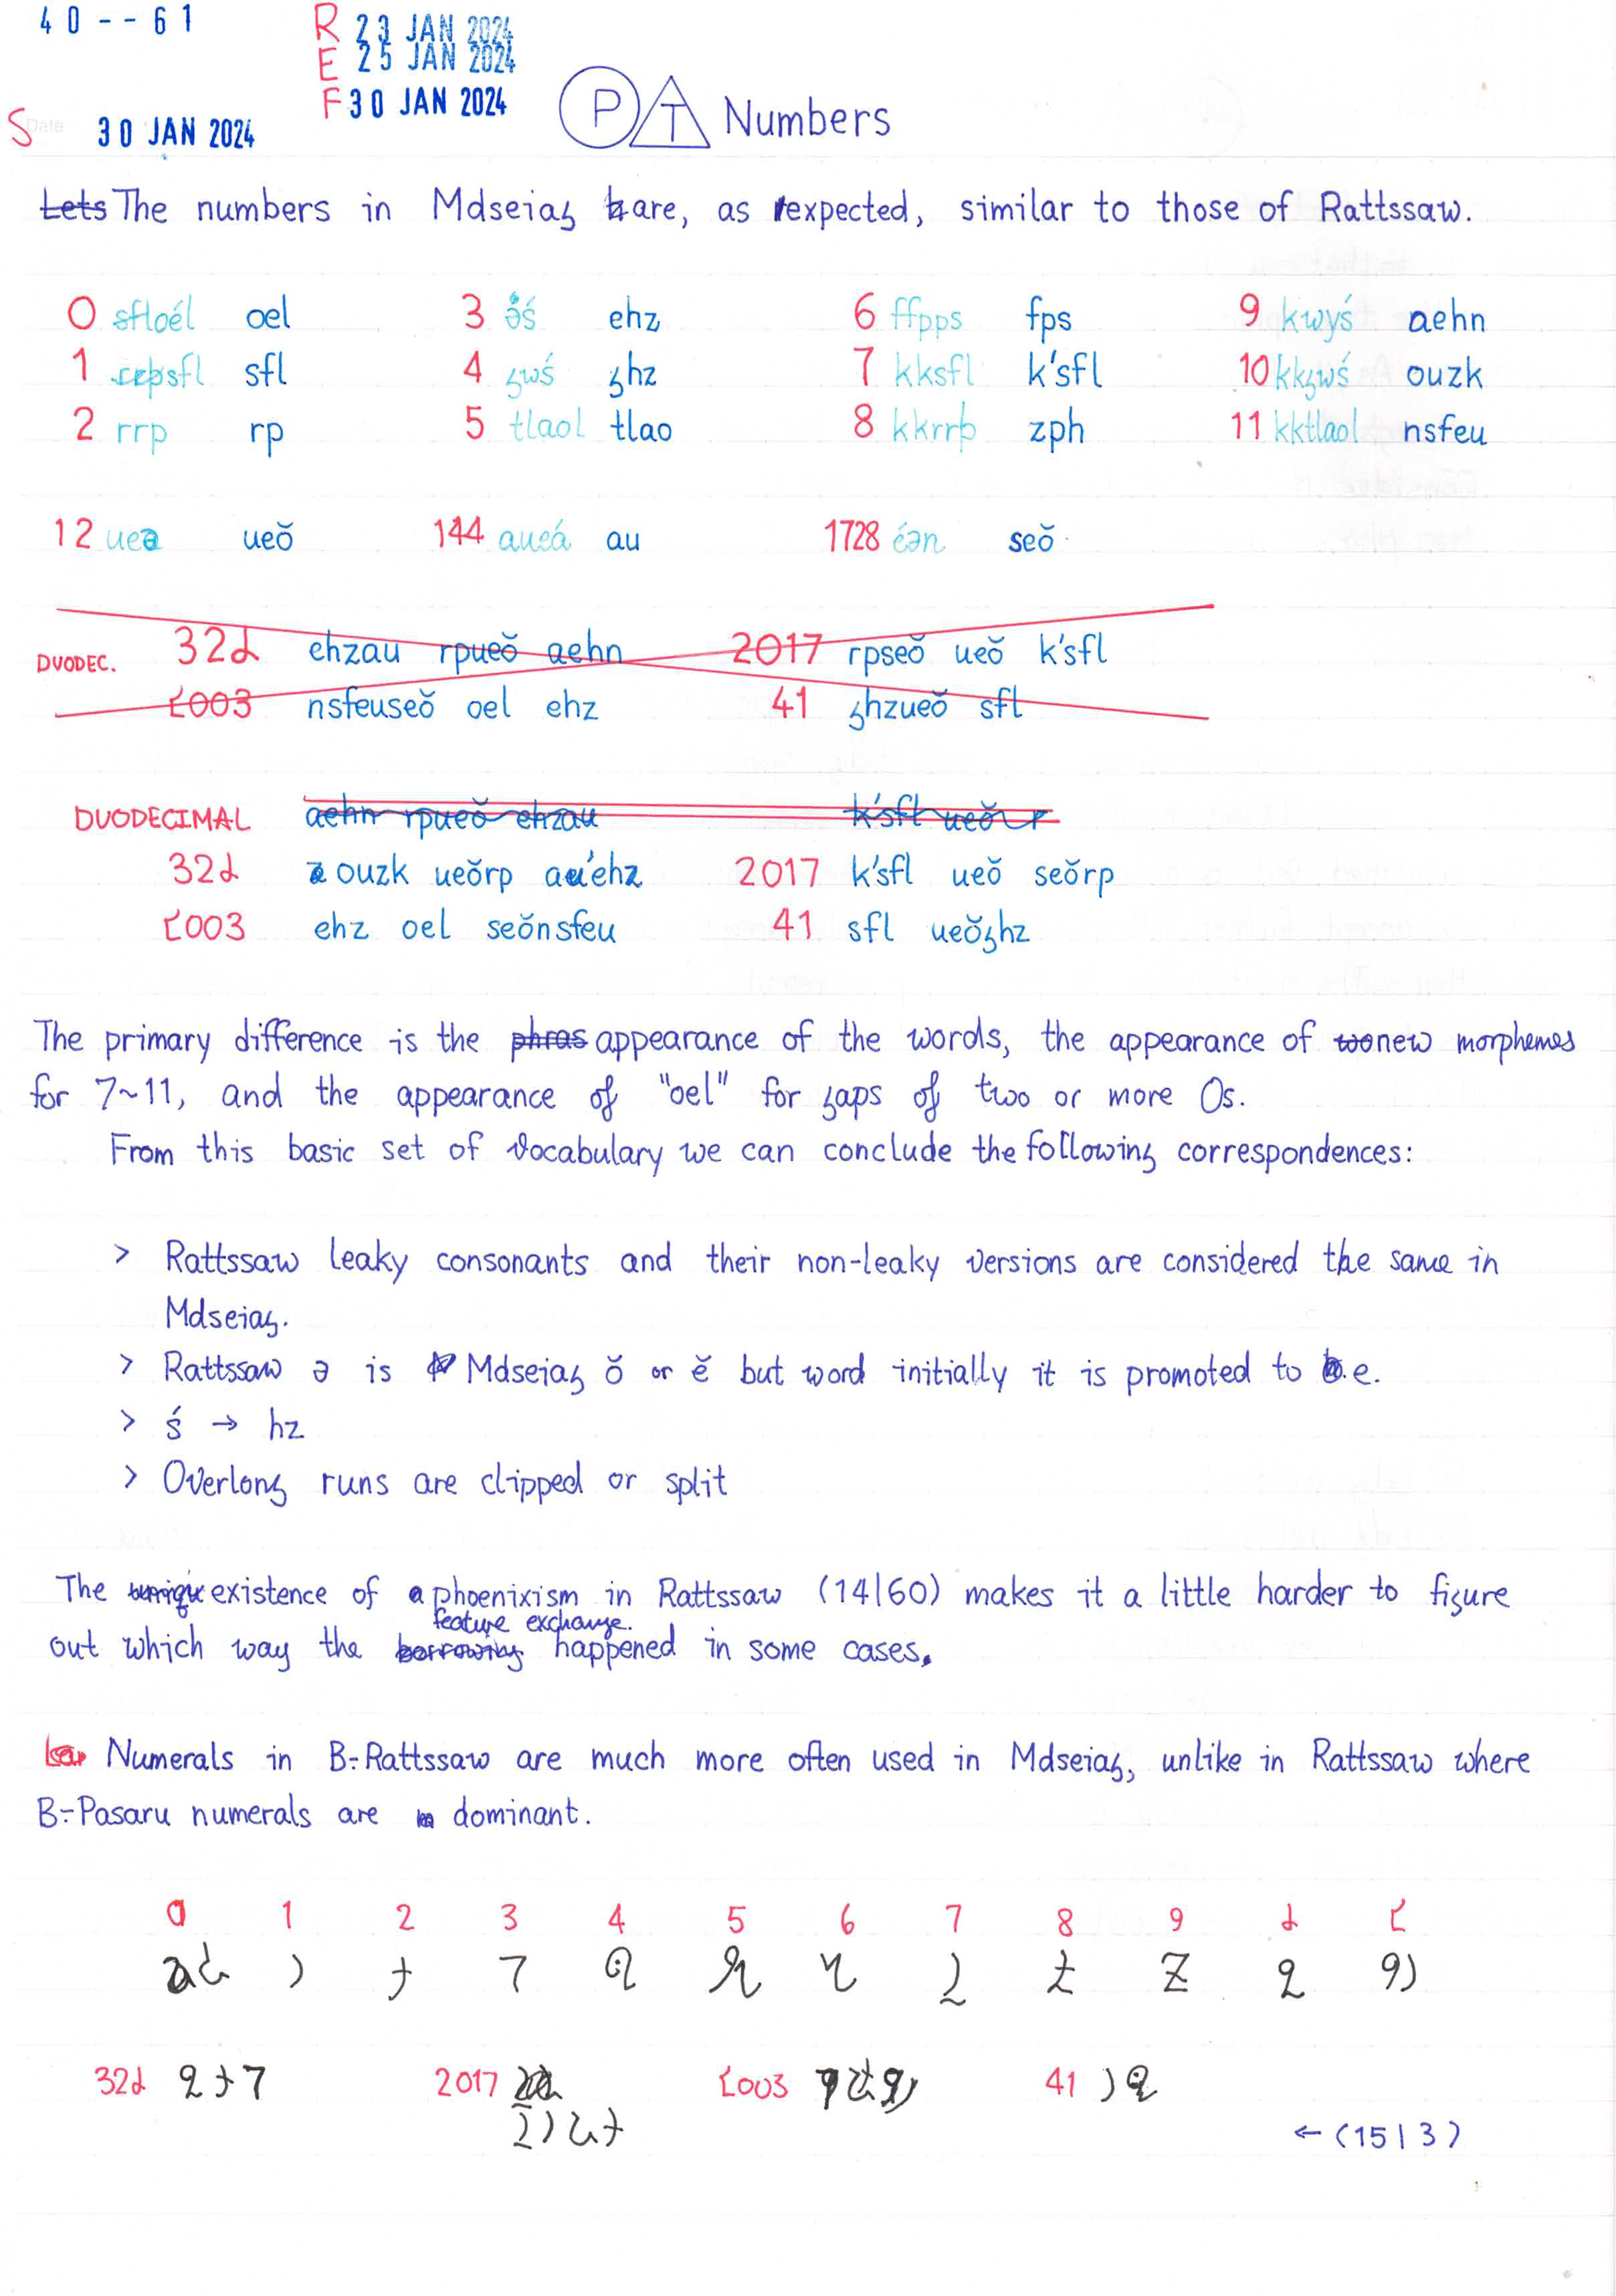 40--61
R 23 JAN 2024
E 25 JAN 2024
F 30 JAN 2024
S Date 30 JAN 2024
P T Numbers
Lets The numbers in Mdseiaȝ are, as expected, similar to those of Rattssaw.
0 sfloél oel 3 ə́ś ehz 6 ffpps fps 9 kwyś aehn
1 sfl sfl 4 ȝwś ȝhz 7 kksfl k'sfl 10 kkȝwś ouzk
2 rrp rp 5 tlaol tlao 8 kkrrþ zph 11 kktlaol nsfeu
12 uea ueŏ 144 aueá au 1728 éən seŏ
DUODEC. 32↊ ehzau rpueŏ aehn 2017 rpseŏ ueŏ k'sfl
↋003 nsfeuseŏ oel ehz 41 ȝhzueŏ sfl
DUODECIMAL aehn rpueŏ ehzau k'sfl ueŏ r
32↊ ouzk ueŏrp au'ehz 2017 k'sfl ueŏ seŏrp
↋003 ehz oel seŏnsfeu 41 sfl ueŏȝhz
The primary difference is the phras appearance of the words, the appearance of wo new morphemes
for 7~11, and the appearance of "oel" for ȝaps of two or more 0s.
From this basic set of vocabulary we can conclude the followinȝ correspondences:
> Rattssaw leaky consonants and their non-leaky versions are considered the same in
Mdseiaȝ.
> Rattssaw ə is Mdseiaȝ ŏ or ĕ but word initially it is promoted to e.
> ś → hz
> Overlonȝ runs are clipped or split
The uniqu existence of a phoenixism in Rattssaw (14|60) makes it a little harder to fiȝure
feature exchanȝe.
out which way the borrowinȝ happened in some cases.
Numerals in B÷Rattssaw are much more often used in Mdseiaȝ, unlike in Rattssaw where
B÷Pasaru numerals are dominant.
0 1 2 3 4 5 6 7 8 9 ↊ ↋
32↊ 2017 ↋003 41
← (15|3)